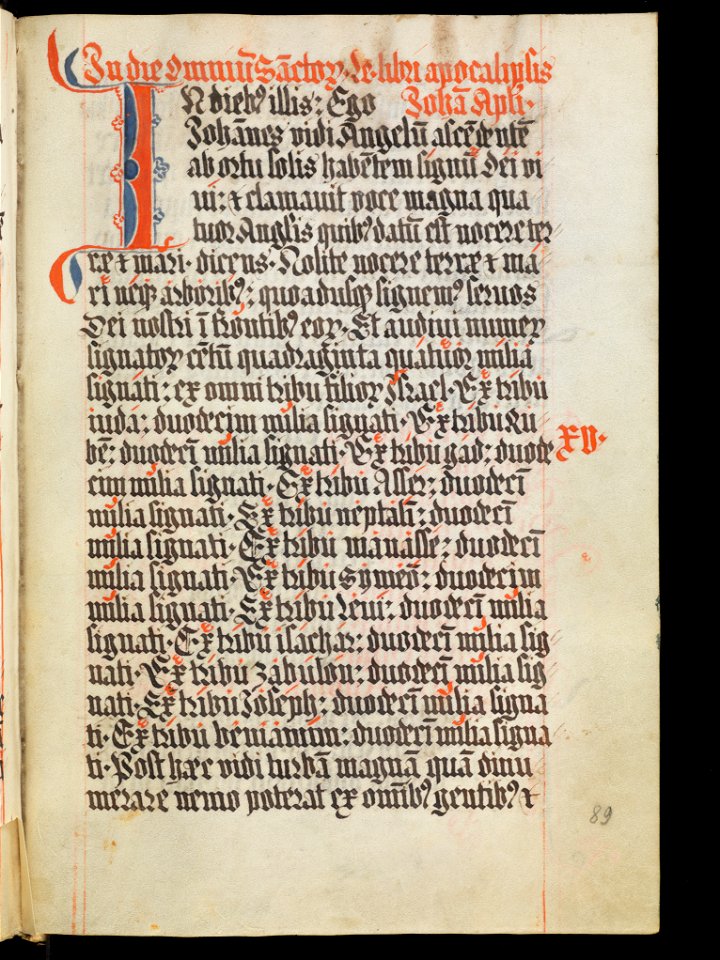 In die Omniū Sāctoꝝ · Le · libri apocalipsis
N dieb⁹ illis : Ego Johā Apli ·
Johānes vidi Angelū ascēdentē
ab ortu solis habētem signū Dei vi
ui : ⁊ clamauit voce magna qua
tuor Angl̄is quib⁹ datū est nocere ter
ræ ⁊ mari · dicens · Nolite nocere terræ ⁊ ma
ri neqꝫ arborib⁹ : quoadusqꝫ signem⁹ seruos
Dei nostri ī frontib⁹ eoꝝ · Et audiui numeꝝ
signatoꝝ cētū quadraginta quatuor milia
signati : ex omni tribu filioꝝ Israel · Ex tribu
iuda : duodecim milia signati · Ex tribu Ru
bē : duodecī milia signati · Ex tribu gad : duode
XV ·
cim milia signati · Ex tribu Asser : duodecī
milia signati · Ex tribu neptalī : duodecī
milia signati · Ex tribu manasse : duodecī
milia signati · Ex tribu Symeō : duodecim
milia signati · Ex tribu Leui : duodecī milia
signati · Ex tribu isachar : duodecī milia sig
nati · Ex tribu Zabulon : duodecī milia sig
nati · Ex tribu Joseph : duodecī milia signa
ti · Ex tribu beniamim : duodecī milia signa
ti · Post hæc vidi turbā magnā quā dinu
merare nemo poterat ex omīb⁹ gentib⁹ ⁊
89